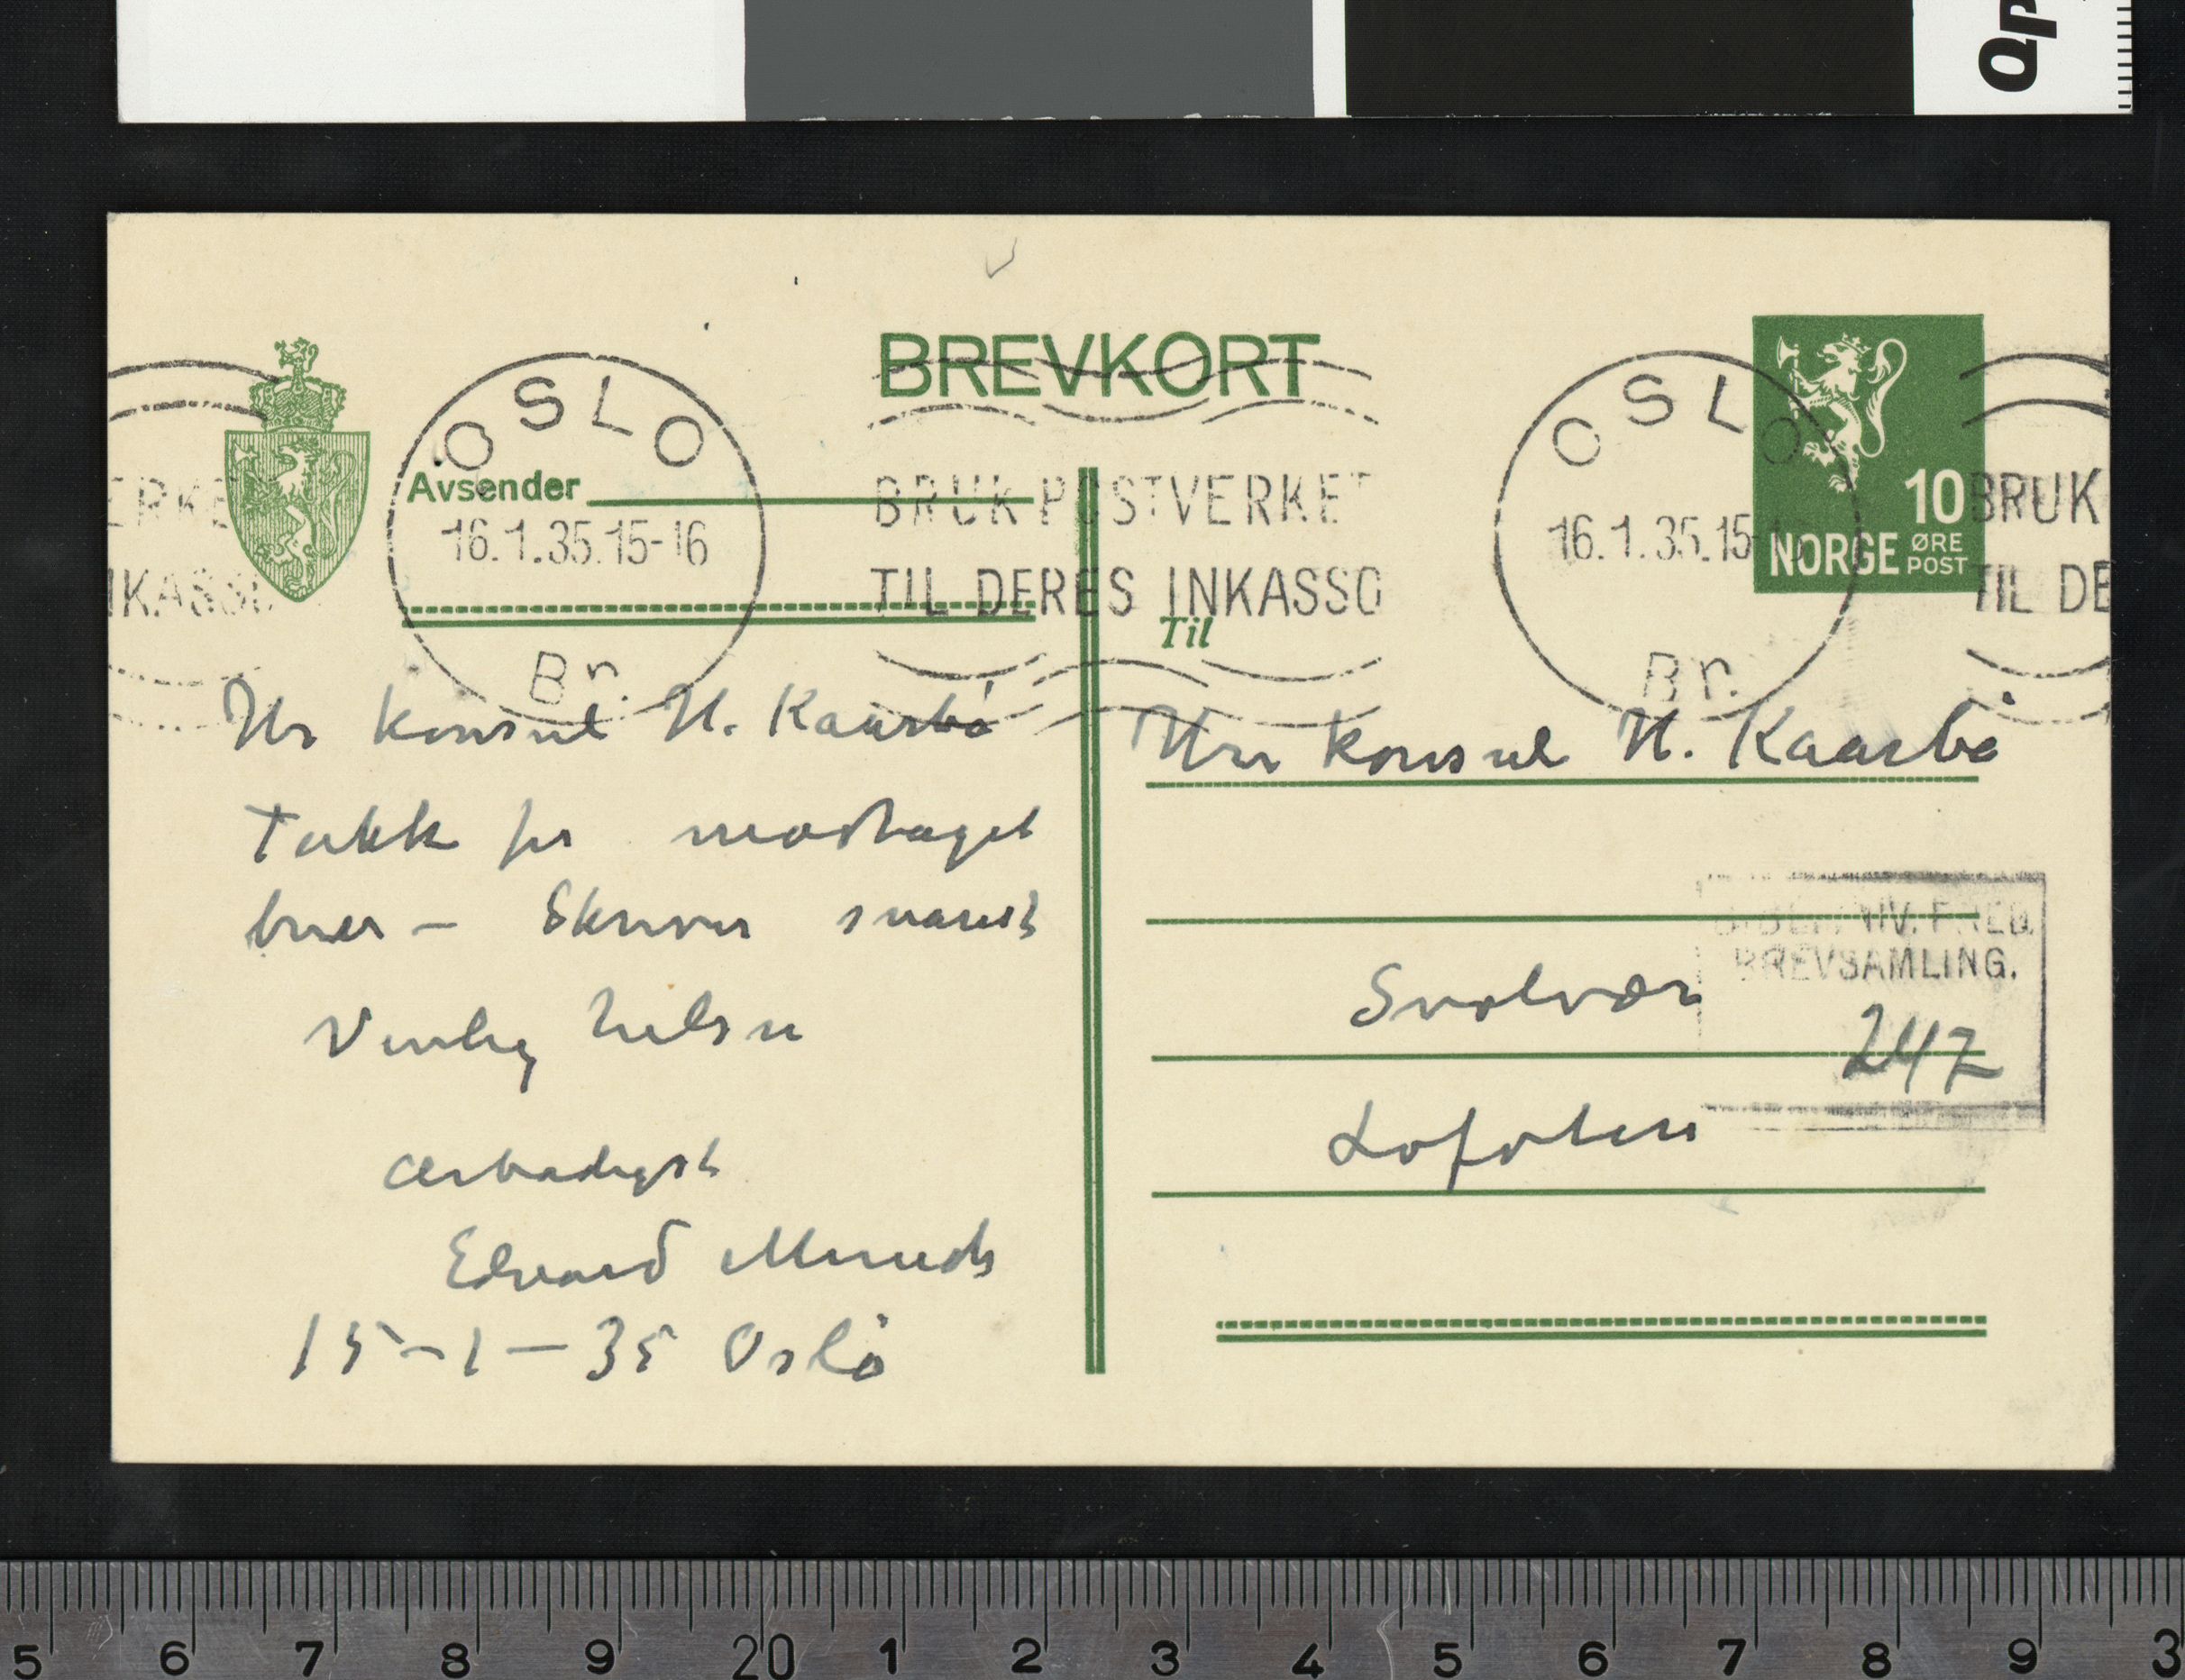 Op
BREVKORT
OSLO
16.1.35.15-16
Br.
Avsender
BRUK POSTVERKET
TIL DERES INKASSO
OSLO
16.1.35.15-16
Br.
10
NORGE ØRE
POST
BRUK
TIL DE
ERKE
NKASSO
Til
Hr konsul H. Kaarbø
Takk for modtaget
brev – Skriver snarest
Venlig hilsen
ærbødigst
Edvard Munch
15–1–35 Oslo
Herr konsul H. Kaarbø
Svolvær
Lofoten
UNIV. FRED.
BREVSAMLING.
247
5 6 7 8 9 20 1 2 3 4 5 6 7 8 9 3